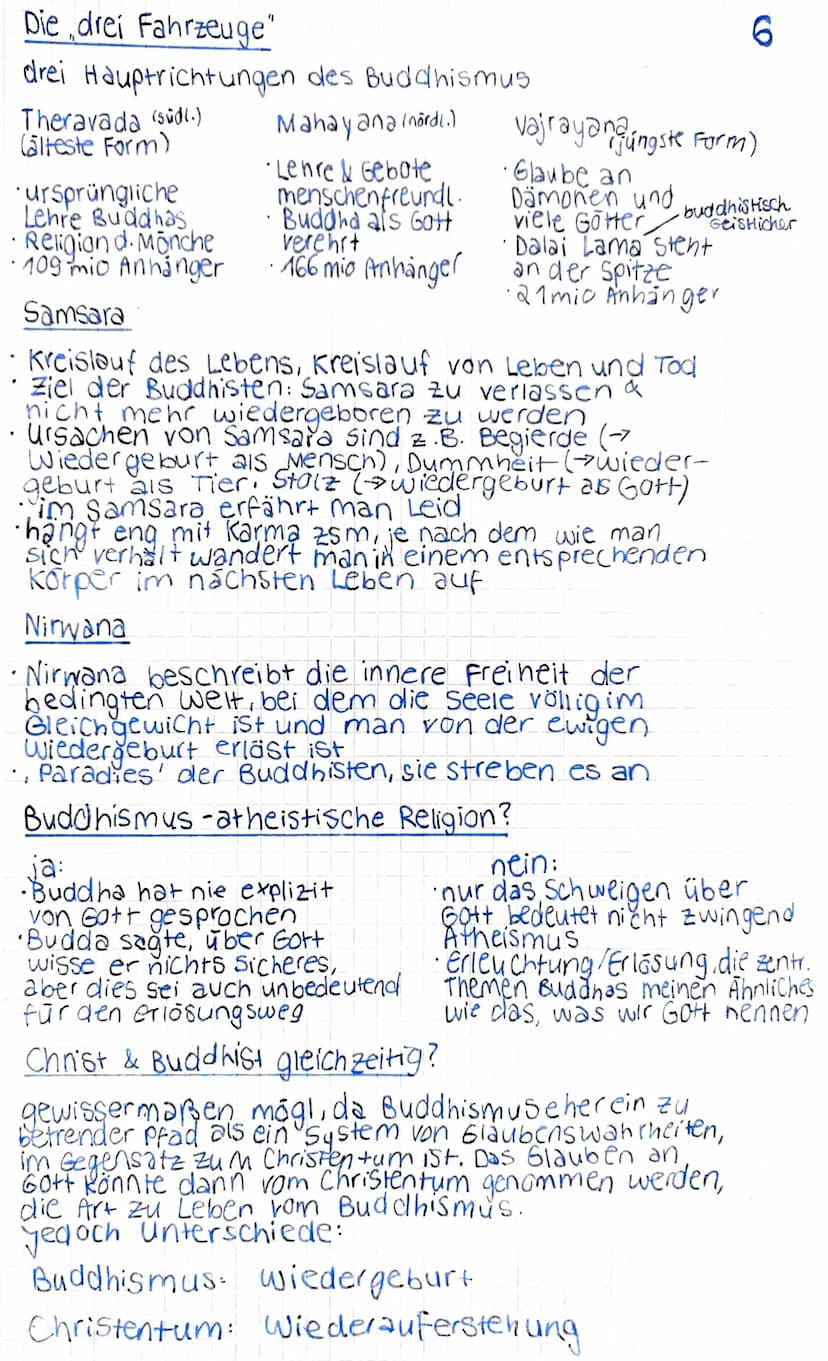 Die „drei Fahrzeuge"
6
drei Hauptrichtungen des Buddhismus
Theravada (südl.)
(älteste Form)
· ursprüngliche
Lehre Buddhas
· Religion d. Mönche
· 109 mio Anhänger
Mahayana (nördl.)
· Lehre & Gebote
menschenfreundl.
· Buddha als Gott
verehrt
· 166 mio Anhänger
Vajrayana (jüngste Form)
· Glaube an
Dämonen und
viele Götter
buddhistisch
Geistlicher
· Dalai Lama steht
an der Spitze
· 21mio Anhänger
Samsara
· Kreislauf des Lebens, Kreislauf von Leben und Tod
· Ziel der Buddhisten: Samsara zu verlassen &
nicht mehr wiedergeboren zu werden
· Ursachen von Samsara sind z.B. Begierde (→
Wiedergeburt als Mensch), Dummheit (→wieder-
geburt als Tier, Stolz (→wiedergeburt als Gott)
· im Samsara erfährt man Leid
· hängt eng mit Karma zsm, je nach dem wie man
sich verhält wandert man in einem entsprechenden
Körper im nächsten Leben auf
Nirwana
· Nirwana beschreibt die innere Freiheit der
bedingten Welt, bei dem die Seele völlig im
Gleichgewicht ist und man von der ewigen
Wiedergeburt erlöst ist
· ‚Paradies' der Buddhisten, sie streben es an
Buddhismus - atheistische Religion?
ja:
· Buddha hat nie explizit
von Gott gesprochen
· Budda sagte, über Gott
wisse er nichts sicheres,
aber dies sei auch unbedeutend
für den Erlösungsweg
nein:
· nur das Schweigen über
Gott bedeutet nicht zwingend
Atheismus
· Erleuchtung/Erlösung, die zentr.
Themen Buddhas meinen Ähnliches
wie das, was wir Gott nennen
Christ & Buddhist gleichzeitig?
gewissermaßen mögl, da Buddhismus eher ein zu
betrender Pfad als ein System von Glaubenswahrheiten,
im Gegensatz zum Christentum ist. Das Glauben an
Gott könnte dann vom Christentum genommen werden,
die Art zu Leben vom Buddhismus.
Jedoch Unterschiede:
Buddhismus: Wiedergeburt
Christentum: Wiederauferstehung